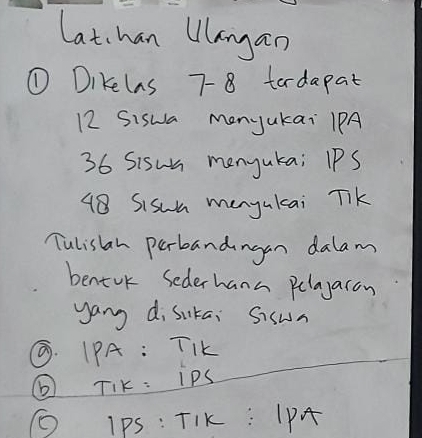 Latihan Ulangan
① Dikelas 7-8 terdapat
12 Siswa menyukai IPA
36 Siswa menyukai IPS
48 Siswa menyukai TIK
Tulislah perbandingan dalam
bentuk Sederhana pelajaran
yang disukai Siswa
ⓐ. IPA : TIK
ⓑ TIK : IPS
ⓒ IPS : TIK : IPA